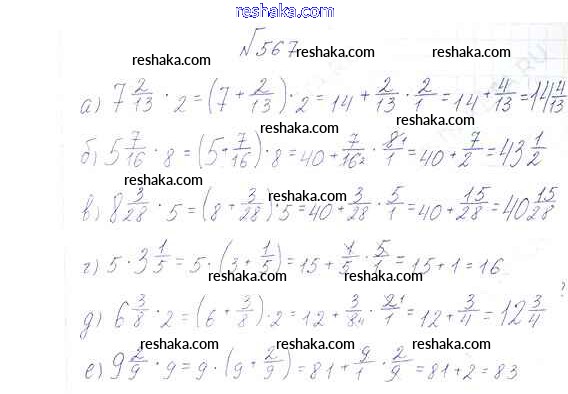 reshaka.com
№567
reshaka.com reshaka.com reshaka.com
а) 7 2/13 · 2 = (7 + 2/13) · 2 = 14 + 2/13 · 2/1 = 14 + 4/13 = 14 4/13
reshaka.com
б) 5 7/16 · 8 = (5 + 7/16) · 8 = 40 + 7/16 2 · 8 1/1 = 40 + 7/2 = 43 1/2
reshaka.com reshaka.com reshaka.com
в) 8 3/28 · 5 = (8 + 3/28) · 5 = 40 + 3/28 · 5/1 = 40 + 15/28 = 40 15/28
reshaka.com
г) 5 · 3 1/5 = 5 · (3 + 1/5) = 15 + 1/5 · 5/1 = 15 + 1 = 16
reshaka.com reshaka.com reshaka.com
д) 6 3/8 · 2 = (6 + 3/8) · 2 = 12 + 3/8 4 · 2 1/1 = 12 + 3/4 = 12 3/4
reshaka.com reshaka.com reshaka.com
е) 9 2/9 · 9 = 9 · (9 + 2/9) = 81 + 9/1 · 2/9 = 81 + 2 = 83
reshaka.com